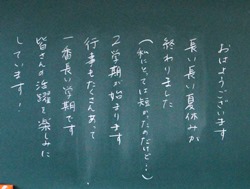 おはようございます
長い長い夏休みが
終わりました
(私にとっては短かったのだけど…)
2学期が始まります
行事もたくさんあって
一番長い学期です
皆さんの活躍を楽しみに
しています!